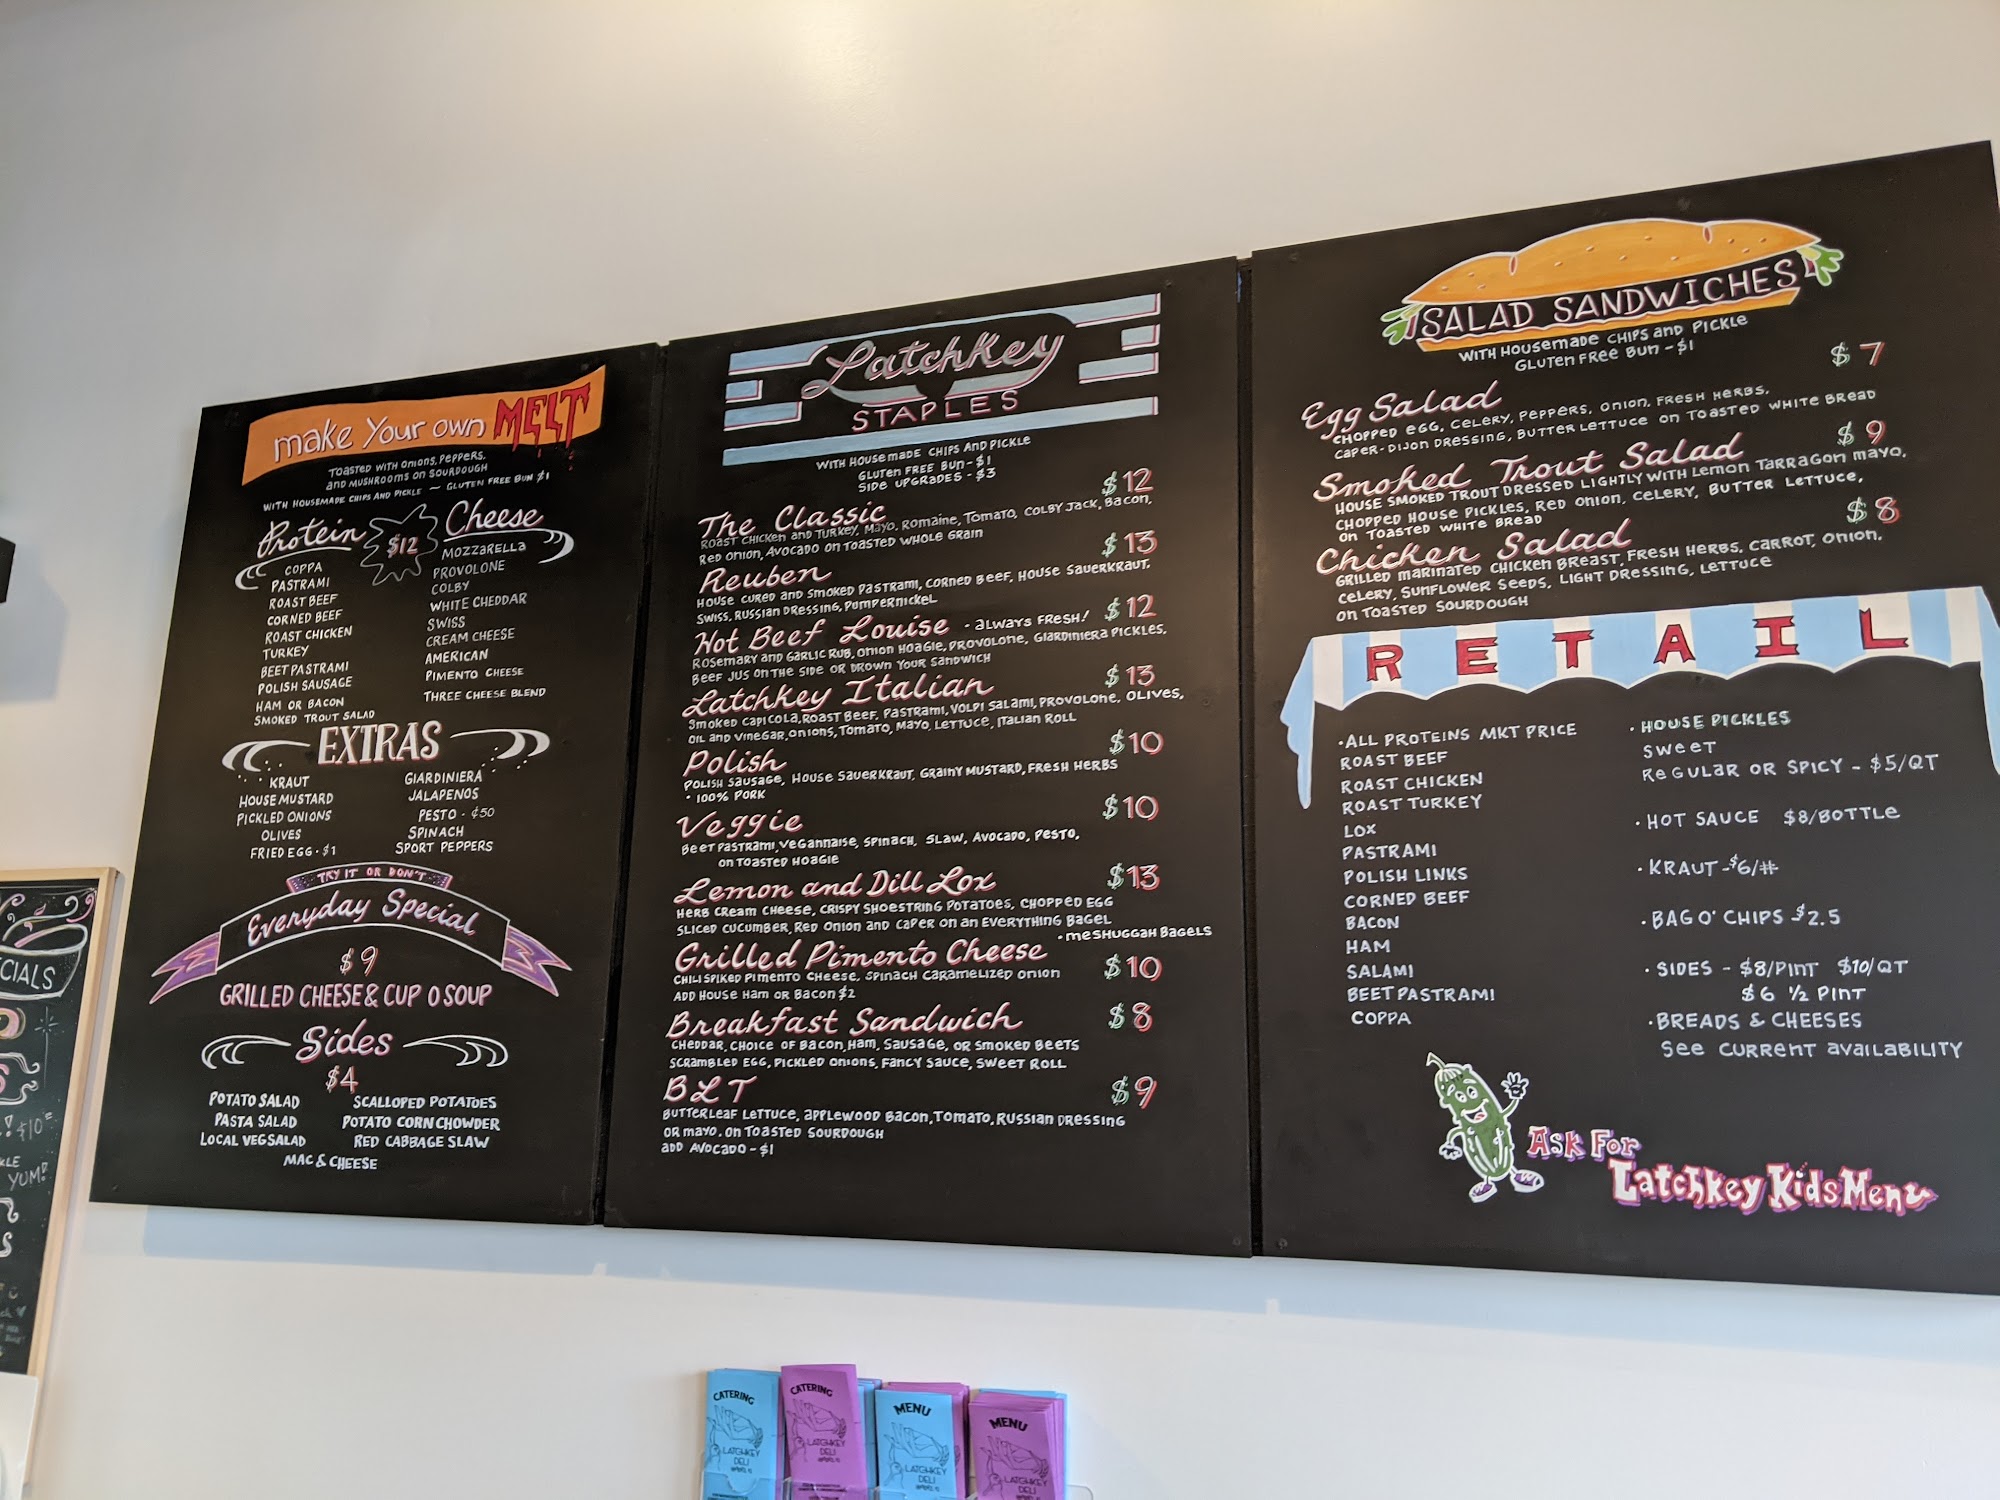 make Your own MELT
TOASTED WITH ONIONS, PEPPERS,
AND MUSHROOMS ON SOURDOUGH
WITH HOUSEMADE CHIPS AND PICKLE ~ GLUTEN FREE BUN $1
Protein
$12
COPPA
PASTRAMI
ROAST BEEF
CORNED BEEF
ROAST CHICKEN
TURKEY
BEET PASTRAMI
POLISH SAUSAGE
HAM OR BACON
SMOKED TROUT SALAD
Cheese
MOZZARELLA
PROVOLONE
COLBY
WHITE CHEDDAR
SWISS
CREAM CHEESE
AMERICAN
PIMENTO CHEESE
THREE CHEESE BLEND
EXTRAS
KRAUT
HOUSE MUSTARD
PICKLED ONIONS
OLIVES
FRIED EGG - $1
GIARDINIERA
JALAPENOS
PESTO - ¢50
SPINACH
SPORT PEPPERS
TRY IT OR DON'T
Everyday Special
$9
GRILLED CHEESE & CUP O SOUP
Sides
$4
POTATO SALAD
PASTA SALAD
LOCAL VEG SALAD
SCALLOPED POTATOES
POTATO CORN CHOWDER
RED CABBAGE SLAW
MAC & CHEESE
Latchkey
STAPLES
WITH HOUSEMADE CHIPS AND PICKLE
GLUTEN FREE BUN - $1
SIDE UPGRADES - $3
The Classic $12
ROAST CHICKEN AND TURKEY, MAYO, ROMAINE, TOMATO, COLBY JACK, BACON,
RED ONION, AVOCADO ON TOASTED WHOLE GRAIN
Reuben $13
HOUSE CURED AND SMOKED PASTRAMI, CORNED BEEF, HOUSE SAUERKRAUT,
SWISS, RUSSIAN DRESSING, PUMPERNICKEL
Hot Beef Louise - ALWAYS FRESH! $12
ROSEMARY AND GARLIC RUB, ONION HOAGIE, PROVOLONE, GIARDINIERA PICKLES,
BEEF JUS ON THE SIDE OR DROWN YOUR SANDWICH
Latchkey Italian $13
SMOKED CAPICOLA, ROAST BEEF, PASTRAMI, VOLPI SALAMI, PROVOLONE, OLIVES,
OIL AND VINEGAR, ONIONS, TOMATO, MAYO, LETTUCE, ITALIAN ROLL
Polish $10
POLISH SAUSAGE, HOUSE SAUERKRAUT, GRAINY MUSTARD, FRESH HERBS
• 100% PORK
Veggie $10
BEET PASTRAMI, VEGANNAISE, SPINACH, SLAW, AVOCADO, PESTO,
ON TOASTED HOAGIE
Lemon and Dill Lox $13
HERB CREAM CHEESE, CRISPY SHOESTRING POTATOES, CHOPPED EGG
SLICED CUCUMBER, RED ONION AND CAPER ON AN EVERYTHING BAGEL
• MESHUGGAH BAGELS
Grilled Pimento Cheese $10
CHILI SPIKED PIMENTO CHEESE, SPINACH CARAMELIZED ONION
ADD HOUSE HAM OR BACON $2
Breakfast Sandwich $8
CHEDDAR, CHOICE OF BACON, HAM, SAUSAGE, OR SMOKED BEETS
SCRAMBLED EGG, PICKLED ONIONS, FANCY SAUCE, SWEET ROLL
BLT $9
BUTTERLEAF LETTUCE, APPLEWOOD BACON, TOMATO, RUSSIAN DRESSING
OR MAYO. ON TOASTED SOURDOUGH
ADD AVOCADO - $1
SALAD SANDWICHES
WITH HOUSEMADE CHIPS AND PICKLE
GLUTEN FREE BUN - $1
Egg Salad $7
CHOPPED EGG, CELERY, PEPPERS, ONION, FRESH HERBS,
CAPER-DIJON DRESSING, BUTTER LETTUCE ON TOASTED WHITE BREAD
Smoked Trout Salad $9
HOUSE SMOKED TROUT DRESSED LIGHTLY WITH LEMON TARRAGON MAYO,
CHOPPED HOUSE PICKLES, RED ONION, CELERY, BUTTER LETTUCE,
ON TOASTED WHITE BREAD
Chicken Salad $8
GRILLED MARINATED CHICKEN BREAST, FRESH HERBS, CARROT, ONION,
CELERY, SUNFLOWER SEEDS, LIGHT DRESSING, LETTUCE
ON TOASTED SOURDOUGH
RETAIL
• ALL PROTEINS MKT PRICE
ROAST BEEF
ROAST CHICKEN
ROAST TURKEY
LOX
PASTRAMI
POLISH LINKS
CORNED BEEF
BACON
HAM
SALAMI
BEET PASTRAMI
COPPA
• HOUSE PICKLES
SWEET
REGULAR OR SPICY - $5/QT
• HOT SAUCE $8/BOTTLE
• KRAUT - $6/#
• BAG O' CHIPS - $2.5
• SIDES - $8/PINT $10/QT
$6 ½ PINT
• BREADS & CHEESES
SEE CURRENT AVAILABILITY
Ask For
Latchkey Kids Menu
CIALS
$10
YUM!
CATERING
LATCHKEY
DELI
CATERING
LATCHKEY
DELI
MENU
LATCHKEY
DELI
MENU
LATCHKEY
DELI